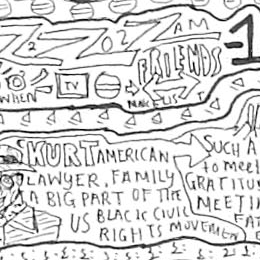 AM
FRIENDS
-1
WHEN
TV
KURT AMERICAN
LAWYER, FAMILY
A BIG PART OF THE
US BLACK CIVIL
RIGHTS MOVEMEN
SUCH A
to meet
GRATITU
MEETI
FAT